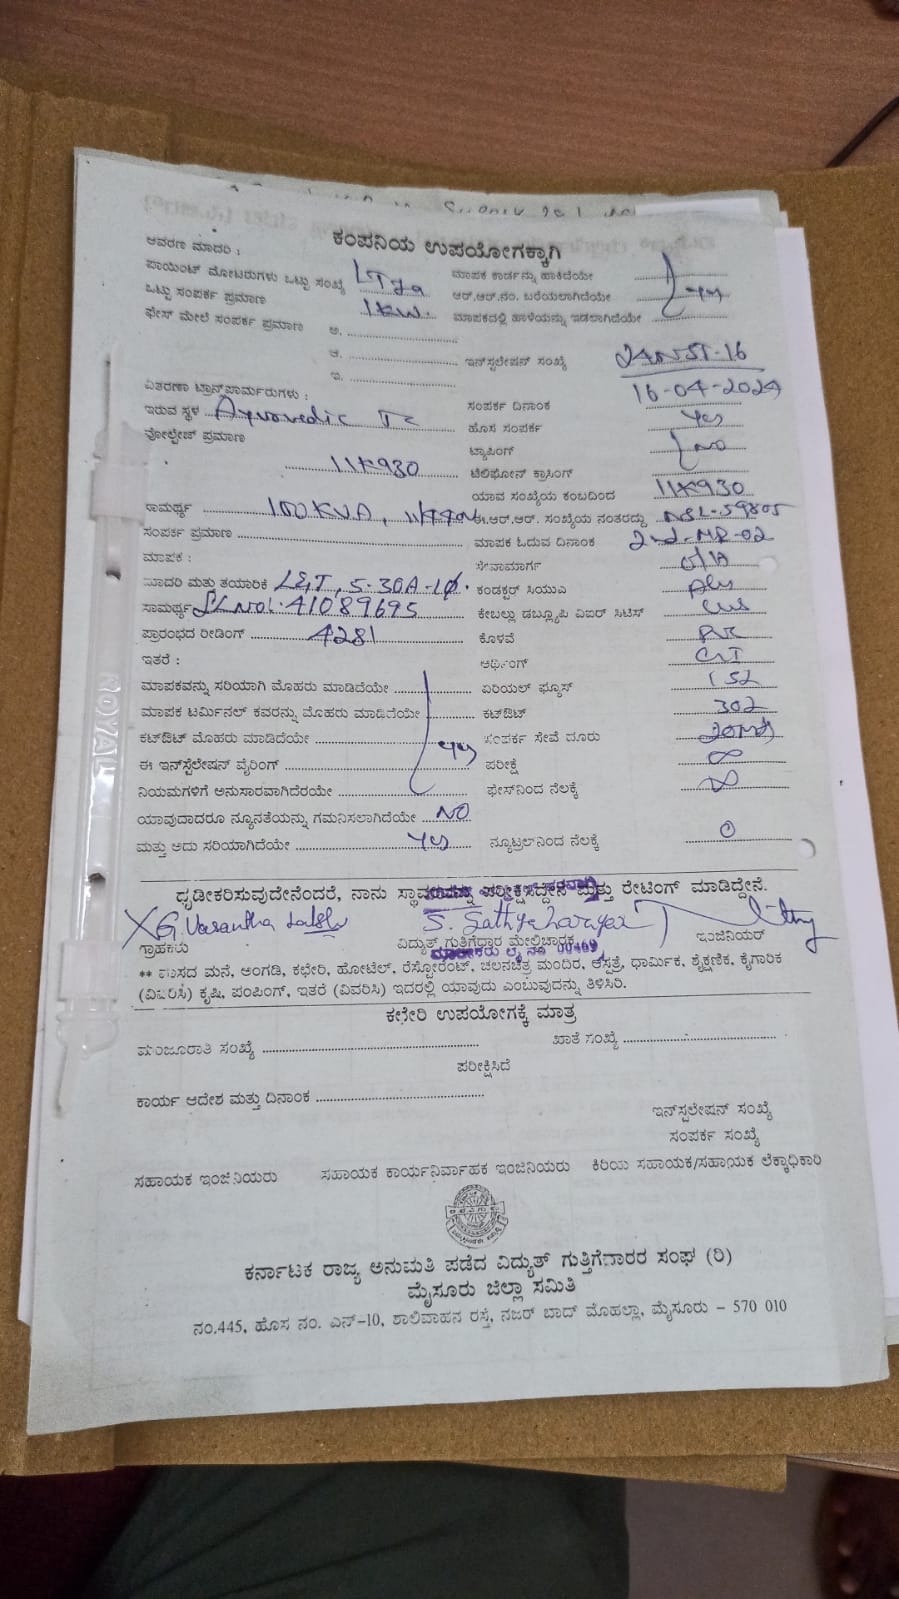 ಕಂಪನಿಯ ಉಪಯೋಗಕ್ಕಾಗಿ
ಆವರಣ ಮಾದರಿ :
ಪಾಯಿಂಟ್ ಮೋಟರುಗಳು ಒಟ್ಟು ಸಂಖ್ಯೆ ಮಾಪಕ ಕಾರ್ಡನ್ನು ಹಾಕಿದೆಯೇ
ಒಟ್ಟು ಸಂಪರ್ಕ ಪ್ರಮಾಣ 1KW. ಆರ್.ಆರ್.ನಂ. ಬರೆಯಲಾಗಿದೆಯೇ yes
ಫೇಸ್ ಮೇಲೆ ಸಂಪರ್ಕ ಪ್ರಮಾಣ ಅ. ಮಾಪಕದಲ್ಲಿ ಹಾಳೆಯನ್ನು ಇಡಲಾಗಿದೆಯೇ
ಆ. ಇನ್‌ಸ್ಟಲೇಷನ್ ಸಂಖ್ಯೆ
ಇ.
ವಿತರಣಾ ಟ್ರಾನ್ಸ್‌ಫಾರ್ಮರುಗಳು : ಸಂಪರ್ಕ ದಿನಾಂಕ 16-04-2024
ಇರುವ ಸ್ಥಳ Ayurvedic Tc ಹೊಸ ಸಂಪರ್ಕ Yes
ವೋಲ್ಟೇಜ್ ಪ್ರಮಾಣ ಟ್ಯಾಪಿಂಗ್ NO
11K930 ಟೆಲಿಫೋನ್ ಕ್ರಾಸಿಂಗ್
ಯಾವ ಸಂಖ್ಯೆಯ ಕಂಬದಿಂದ 11K930
ಸಾಮರ್ಥ್ಯ 100KVA, ಈ.ಆರ್.ಆರ್. ಸಂಖ್ಯೆಯ ನಂತರದ್ದು NSL-59805
ಸಂಪರ್ಕ ಪ್ರಮಾಣ ಮಾಪಕ ಓದುವ ದಿನಾಂಕ 2nd-MR-02
ಮಾಪಕ : ಸೇವಾಮಾರ್ಗ O/H
ಮಾದರಿ ಮತ್ತು ತಯಾರಿಕೆ L&T, 5-30A-1Φ. ಕಂಡಕ್ಟರ್ ಸಿಯುಎ
ಸಾಮರ್ಥ್ಯ SL No: 41089695 ಕೇಬಲ್ಲು ಡಬ್ಲ್ಯೂಪಿ ವಿಐಆರ್ ಸಿಟಿಸ್
ಪ್ರಾರಂಭದ ರೀಡಿಂಗ್ 4281 ಕೊಳವೆ PVC
ಇತರೆ : ಅರ್ಥಿಂಗ್
ಮಾಪಕವನ್ನು ಸರಿಯಾಗಿ ಮೊಹರು ಮಾಡಿದೆಯೇ ಏರಿಯಲ್ ಫ್ಯೂಸ್
ಮಾಪಕ ಟರ್ಮಿನಲ್ ಕವರನ್ನು ಮೊಹರು ಮಾಡಿದೆಯೇ ಕಟ್‌ಔಟ್
ಕಟ್‌ಔಟ್ ಮೊಹರು ಮಾಡಿದೆಯೇ yes ಸಂಪರ್ಕ ಸೇವೆ ದೂರು
ಈ ಇನ್‌ಸ್ಟಲೇಷನ್ ವೈರಿಂಗ್ ಪರೀಕ್ಷೆ ∞
ನಿಯಮಗಳಿಗೆ ಅನುಸಾರವಾಗಿದೆರಯೇ ಫೇಸ್‌ನಿಂದ ನೆಲಕ್ಕೆ ∞
ಯಾವುದಾದರೂ ನ್ಯೂನತೆಯನ್ನು ಗಮನಿಸಲಾಗಿದೆಯೇ NO
ಮತ್ತು ಅದು ಸರಿಯಾಗಿದೆಯೇ yes ನ್ಯೂಟ್ರಲ್‌ನಿಂದ ನೆಲಕ್ಕೆ 0
ಧೃಡೀಕರಿಸುವುದೇನೆಂದರೆ, ನಾನು ಸ್ಥಾವರವನ್ನು ಪರೀಕ್ಷಿಸಿದ್ದೇನೆ ಮತ್ತು ರೇಟಿಂಗ್ ಮಾಡಿದ್ದೇನೆ.
ಗ್ರಾಹಕರು ವಿದ್ಯುತ್ ಗುತ್ತಿಗೆದಾರ ಮೇಲ್ವಿಚಾರಕ ಇಂಜಿನಿಯರ್
** ವಾಸದ ಮನೆ, ಅಂಗಡಿ, ಕಛೇರಿ, ಹೋಟೆಲ್, ರೆಸ್ಟೋರೆಂಟ್, ಚಲನಚಿತ್ರ ಮಂದಿರ, ಆಸ್ಪತ್ರೆ, ಧಾರ್ಮಿಕ, ಶೈಕ್ಷಣಿಕ, ಕೈಗಾರಿಕೆ
(ವಿವರಿಸಿ) ಕೃಷಿ, ಪಂಪಿಂಗ್, ಇತರೆ (ವಿವರಿಸಿ) ಇದರಲ್ಲಿ ಯಾವುದು ಎಂಬುವುದನ್ನು ತಿಳಿಸಿರಿ.
ಕಛೇರಿ ಉಪಯೋಗಕ್ಕೆ ಮಾತ್ರ
ಮಂಜೂರಾತಿ ಸಂಖ್ಯೆ ಖಾತೆ ಸಂಖ್ಯೆ
ಪರೀಕ್ಷಿಸಿದೆ
ಕಾರ್ಯ ಆದೇಶ ಮತ್ತು ದಿನಾಂಕ
ಇನ್‌ಸ್ಟಲೇಷನ್ ಸಂಖ್ಯೆ
ಸಂಪರ್ಕ ಸಂಖ್ಯೆ
ಸಹಾಯಕ ಇಂಜಿನಿಯರು ಸಹಾಯಕ ಕಾರ್ಯನಿರ್ವಾಹಕ ಇಂಜಿನಿಯರು ಕಿರಿಯ ಸಹಾಯಕ/ಸಹಾಯಕ ಲೆಕ್ಕಾಧಿಕಾರಿ
ಕರ್ನಾಟಕ ರಾಜ್ಯ ಅನುಮತಿ ಪಡೆದ ವಿದ್ಯುತ್ ಗುತ್ತಿಗೆದಾರರ ಸಂಘ (ರಿ)
ಮೈಸೂರು ಜಿಲ್ಲಾ ಸಮಿತಿ
ನಂ.445, ಹೊಸ ನಂ. ಎನ್-10, ಶಾಲಿವಾಹನ ರಸ್ತೆ, ನಜರ್ ಬಾದ್ ಮೊಹಲ್ಲಾ, ಮೈಸೂರು - 570 010
ROYAL